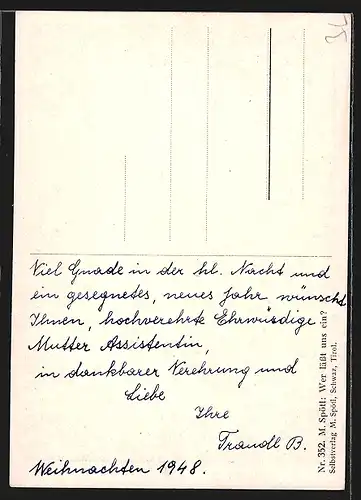 Viel Gnade in der hl. Nacht und
ein gesegnetes, neues Jahr wünscht
Ihnen, hochverehrte Ehrwürdige
Mutter Assistentin,
in dankbarer Verehrung und
Liebe
Ihre
Traudl B.
Weihnachten 1948.
Nr. 352. M. Spötl: Wer läßt uns ein?
Selbstverlag M. Spötl, Schwaz, Tirol.